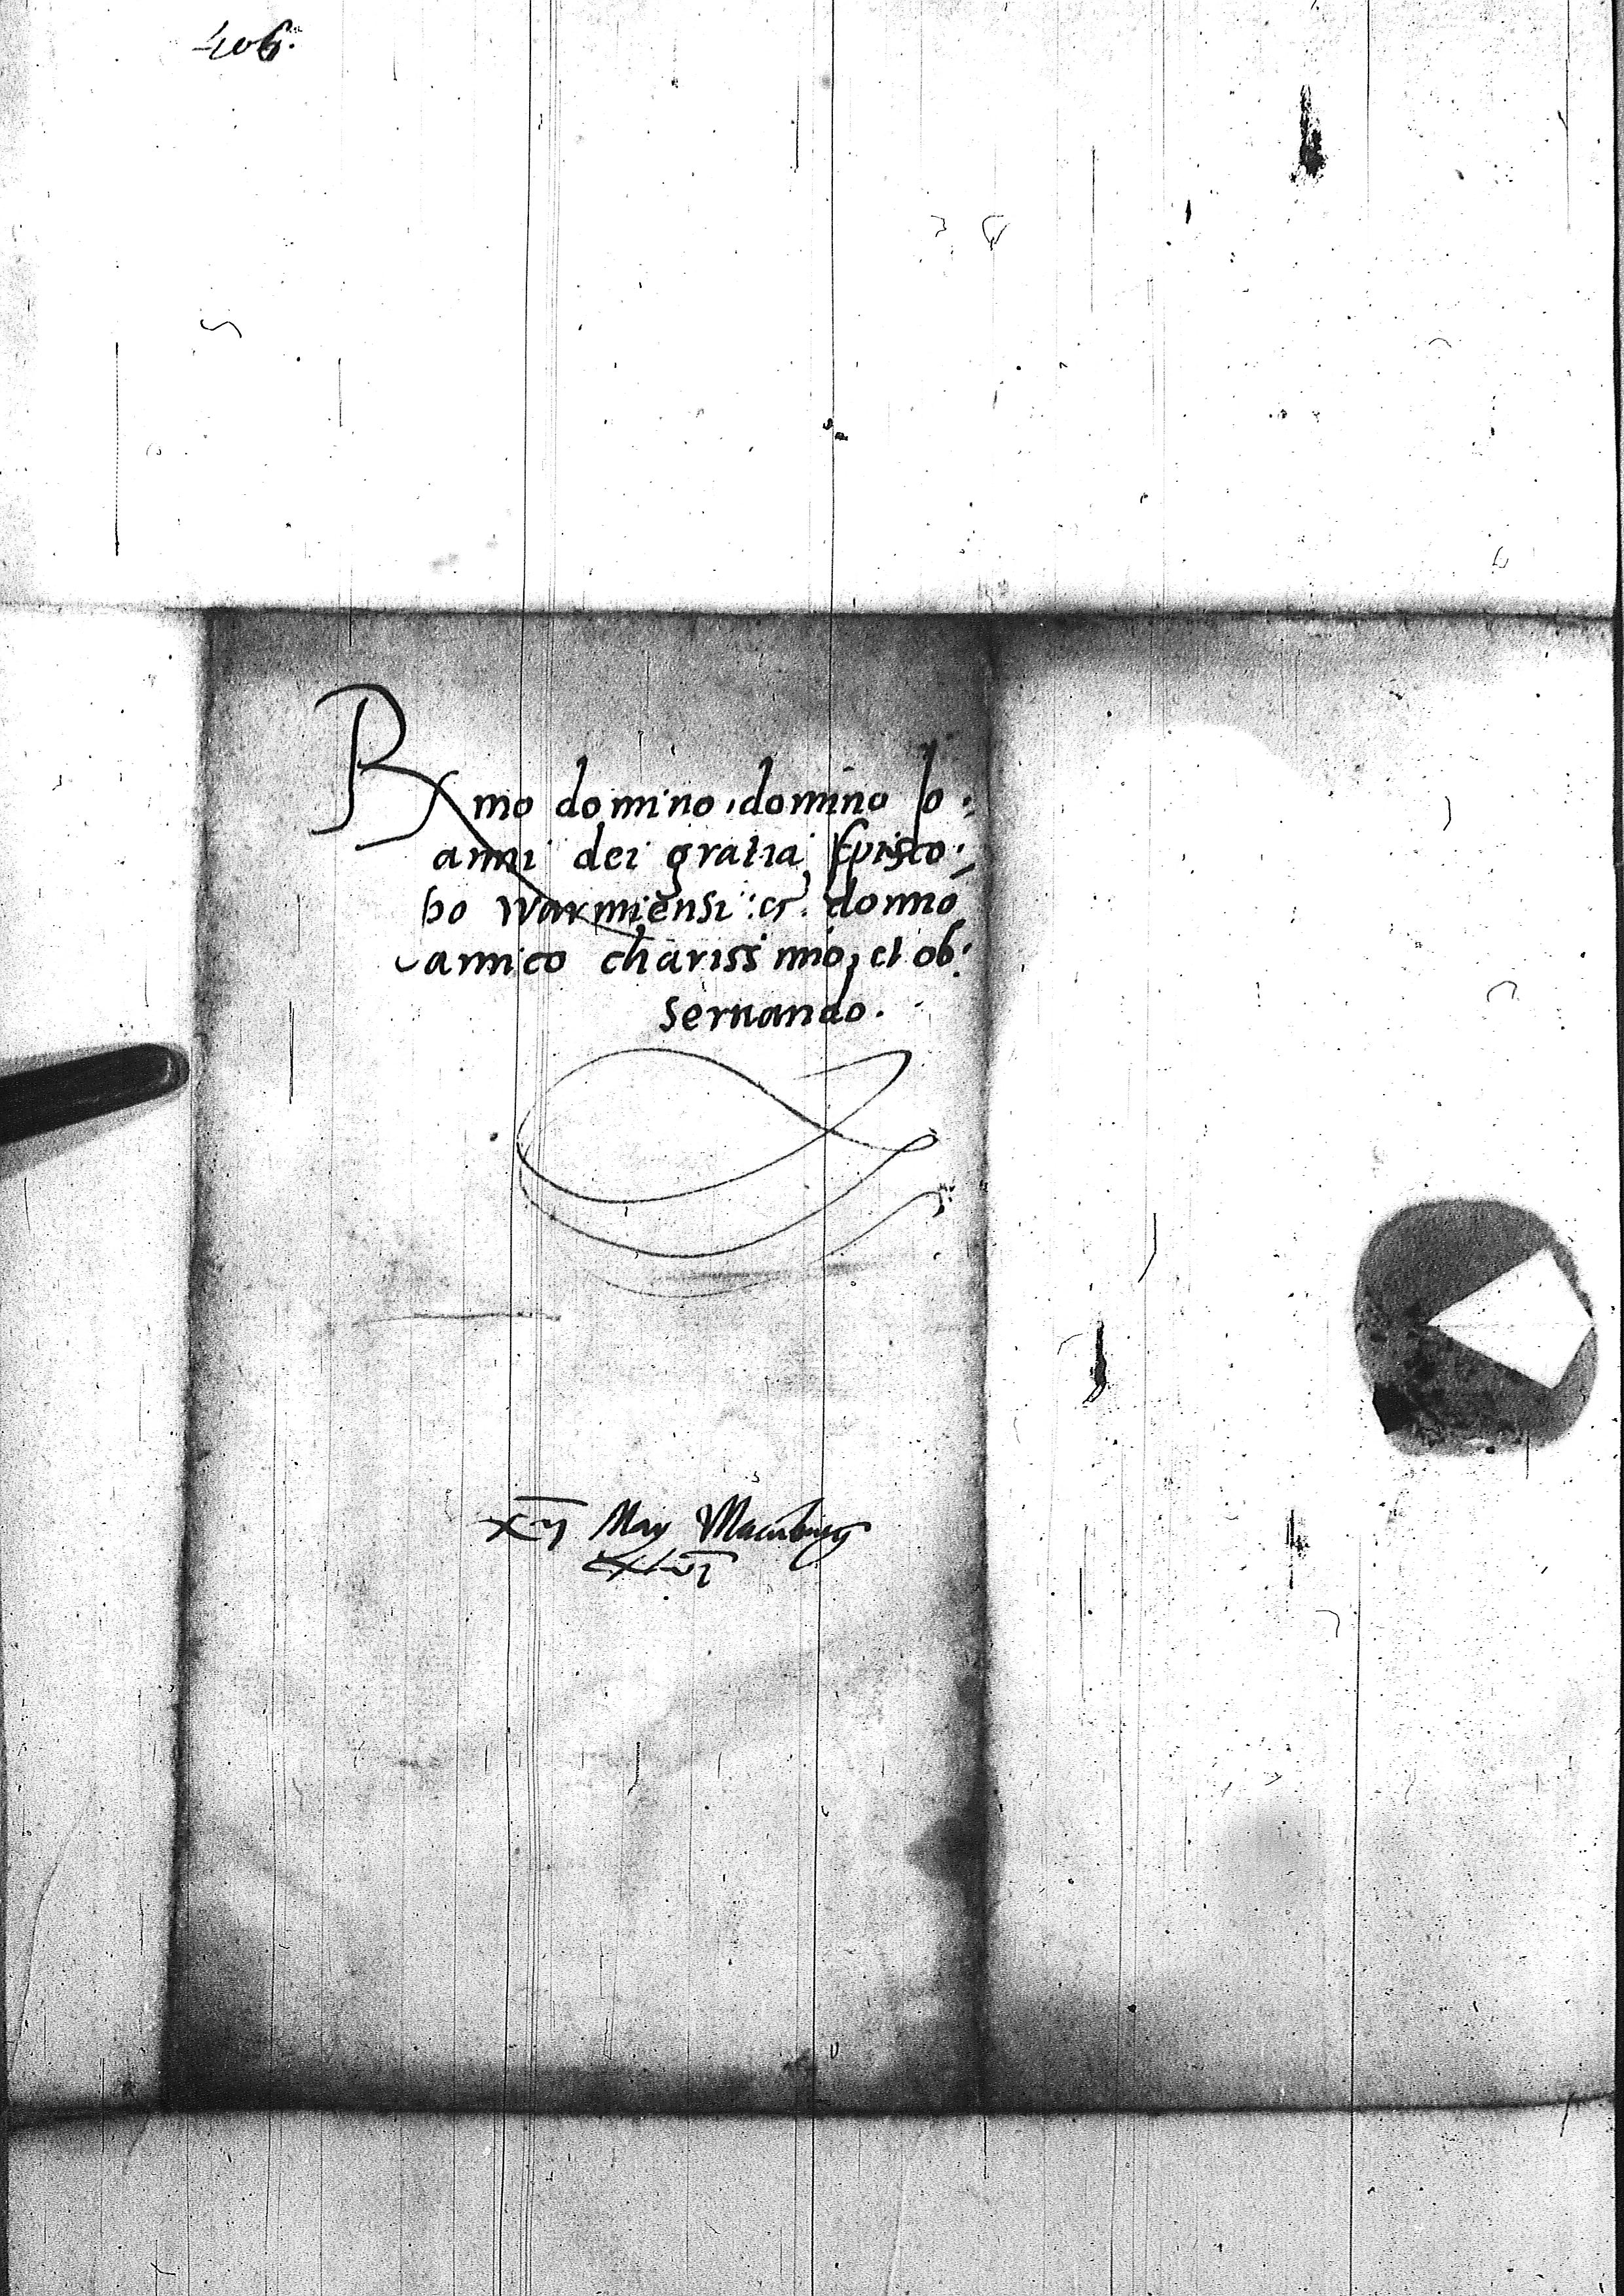 406.
Rmo domino domino Io:
anni dei gratia Episco:
po Warmiensi etc. domino
amico charissimo, et ob:
seruando.
May